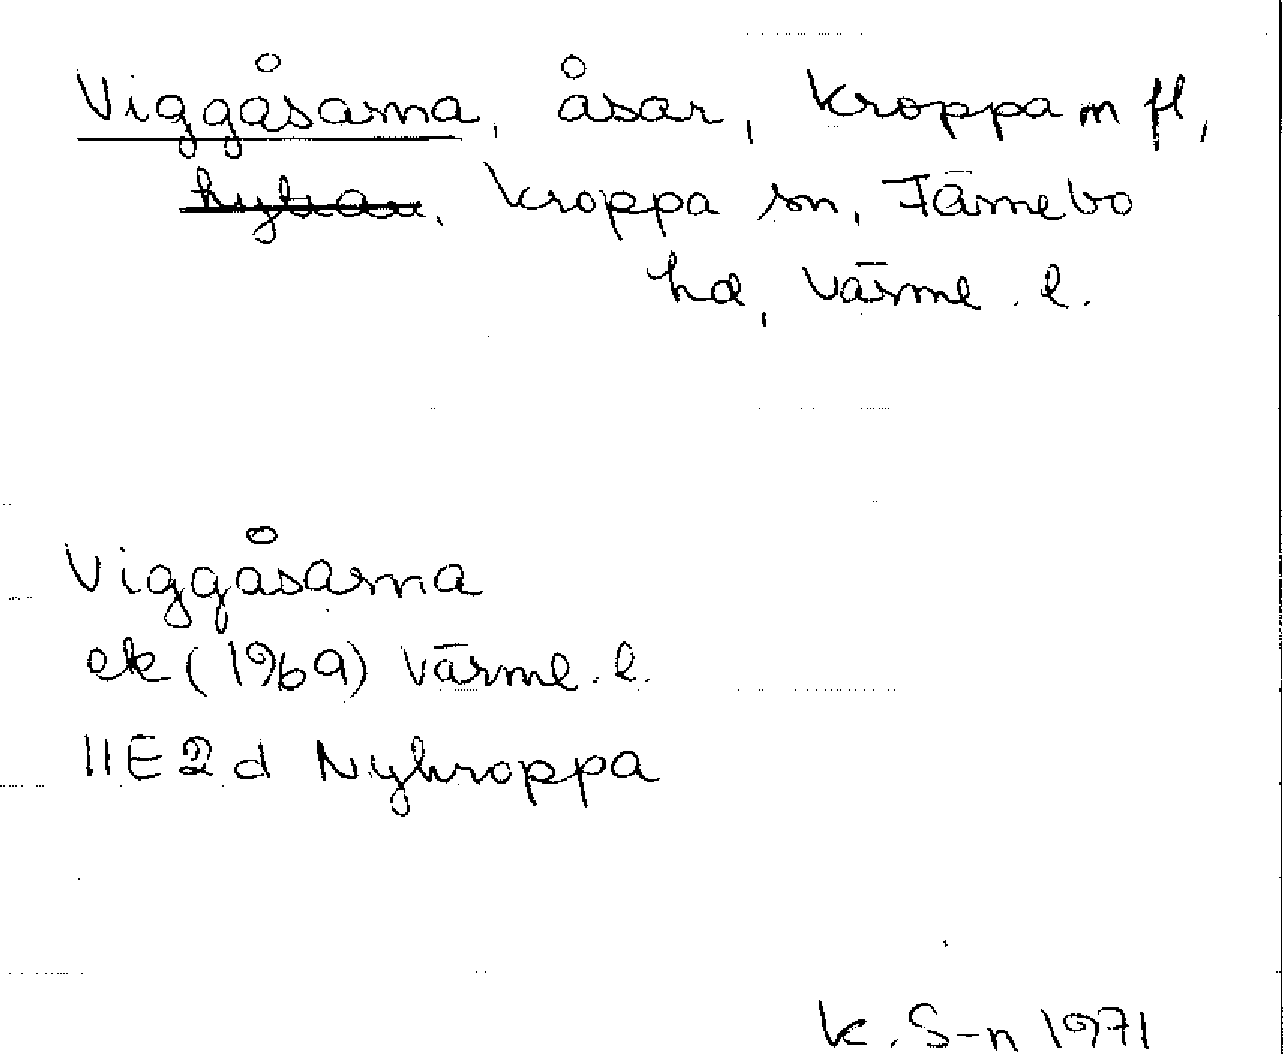 Viggåsarna, åsar, Kroppa m fl,
Kroppa sn, Färnebo
hd, Värml. l.
Viggåsarna
ek (1969) Värml. l.
11E2d Nykroppa
K. S-n 1971